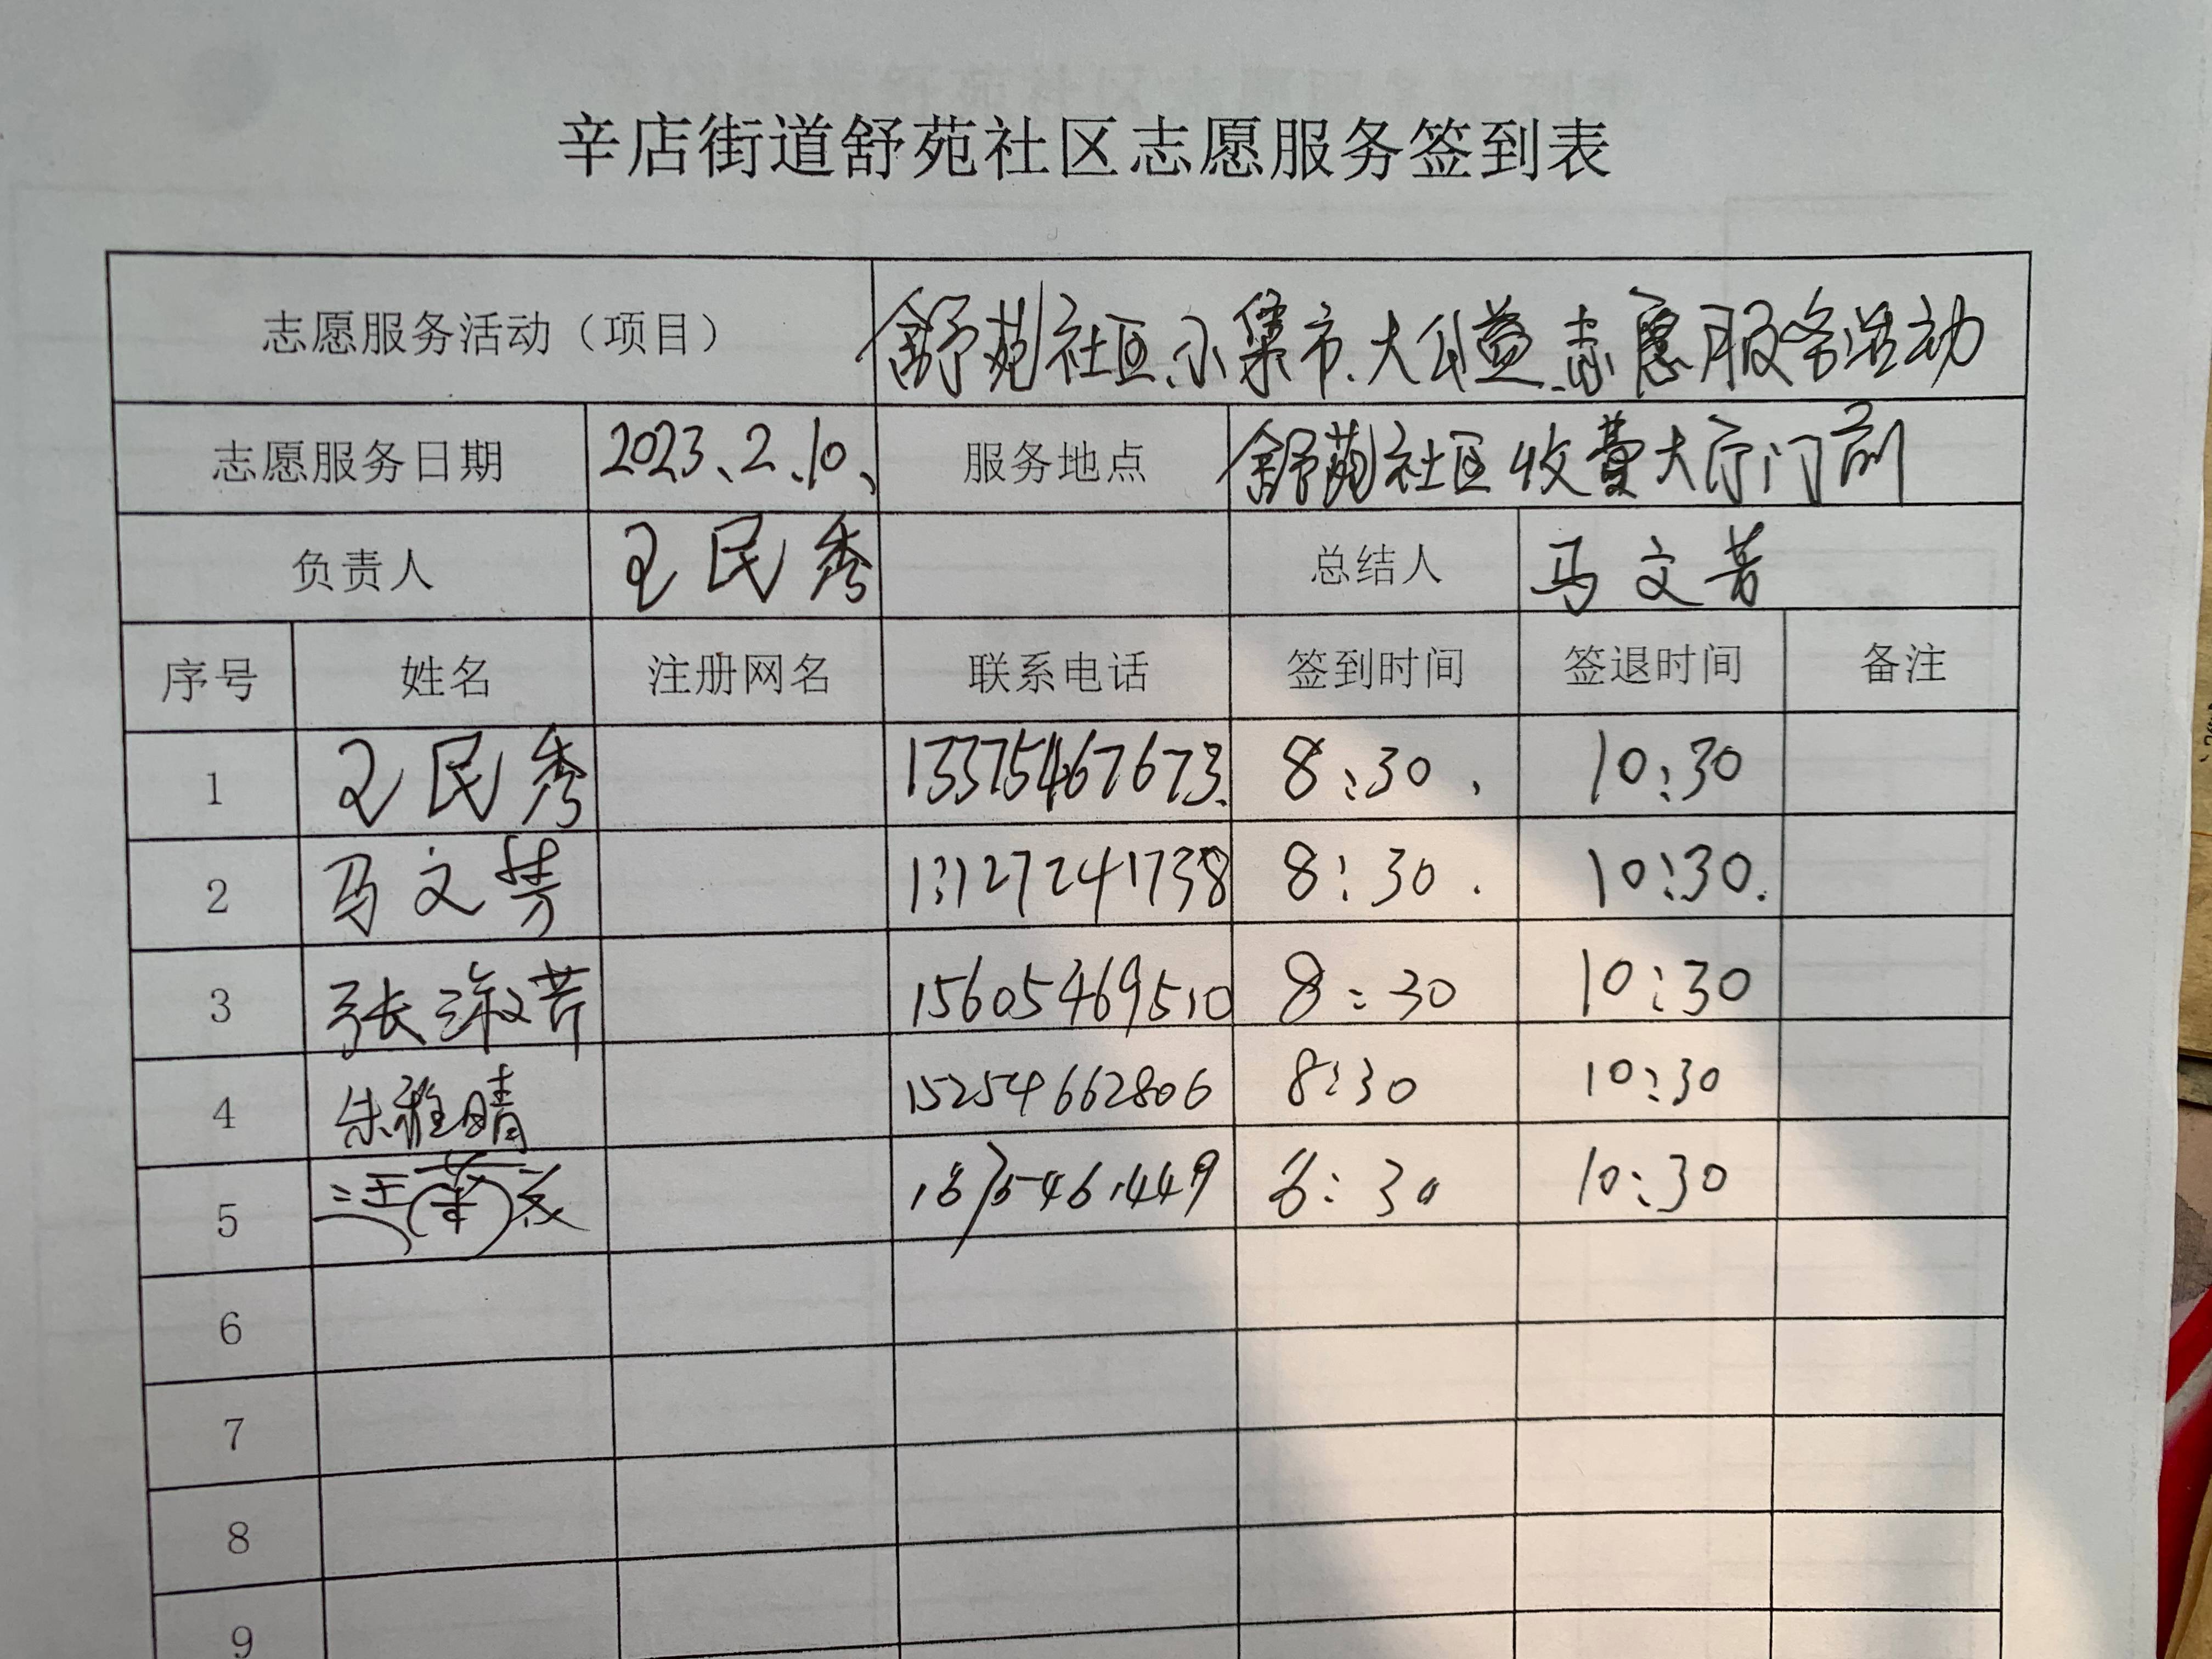 辛店街道舒苑社区志愿服务签到表
志愿服务活动（项目） 舒苑社区、小集市、大公益、志愿服务活动
志愿服务日期 2023、2、10、 服务地点 舒苑社区收费大厅门前
负责人 王民秀 总结人 马文芳
序号 姓名 注册网名 联系电话 签到时间 签退时间 备注
1 王民秀 13375467673、 8:30、 10:30
2 马文芳 13127241738 8:30. 10:30.
3 张淑芹 15605469510 8:30 10:30
4 朱雅晴 15254662806 8:30 10:30
5 1875461449 8:30 10:30
6
7
8
9